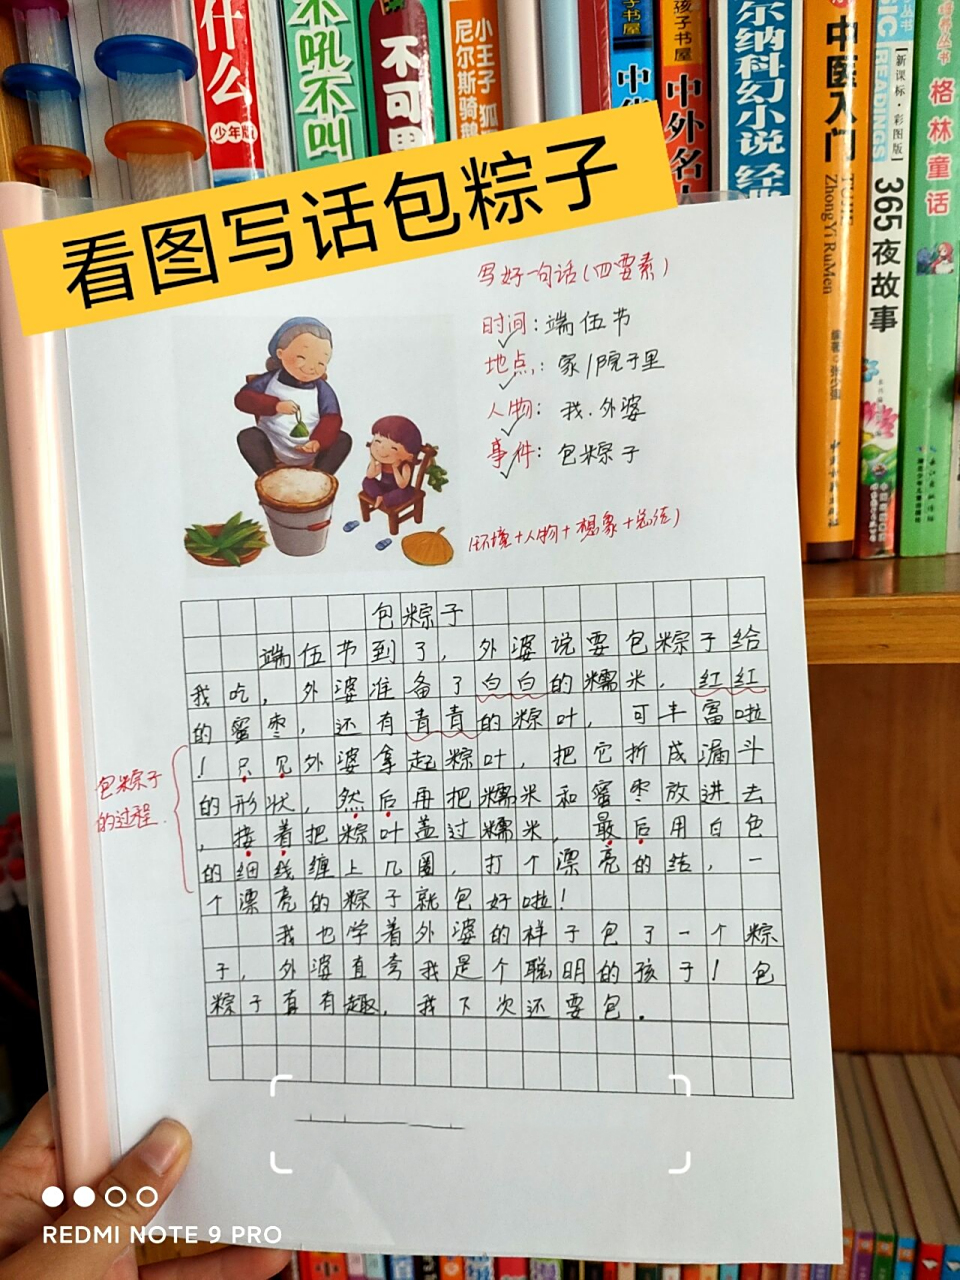 什么
少年版
不吼不叫
小王子 狐
尼尔斯骑鹅
孩子书屋
中外名
尔纳科幻小说 经典
中医入门
ZhongYi RuMen
编著：张少强
[新课标·彩图版]
365夜故事
格林童话
看图写话包粽子
写好一句话(四要素)
时间：端伍节
地点：家/院子里
人物：我.外婆
事件：包粽子
(环境+人物+想象+总结)
包粽子
端伍节到了，外婆说要包粽子给
我吃，外婆准备了白白的糯米，红红
的蜜枣，还有青青的粽叶，可丰富啦
！只见外婆拿起粽叶，把它折成漏斗
的形状，然后再把糯米和蜜枣放进去
，接着把粽叶盖过糯米，最后用白色
的细线缠上几圈，打个漂亮的结，一
个漂亮的粽子就包好啦！
我也学着外婆的样子包了一个粽
子，外婆直夸我是个聪明的孩子！包
粽子真有趣，我下次还要包.
包粽子
的过程.
REDMI NOTE 9 PRO